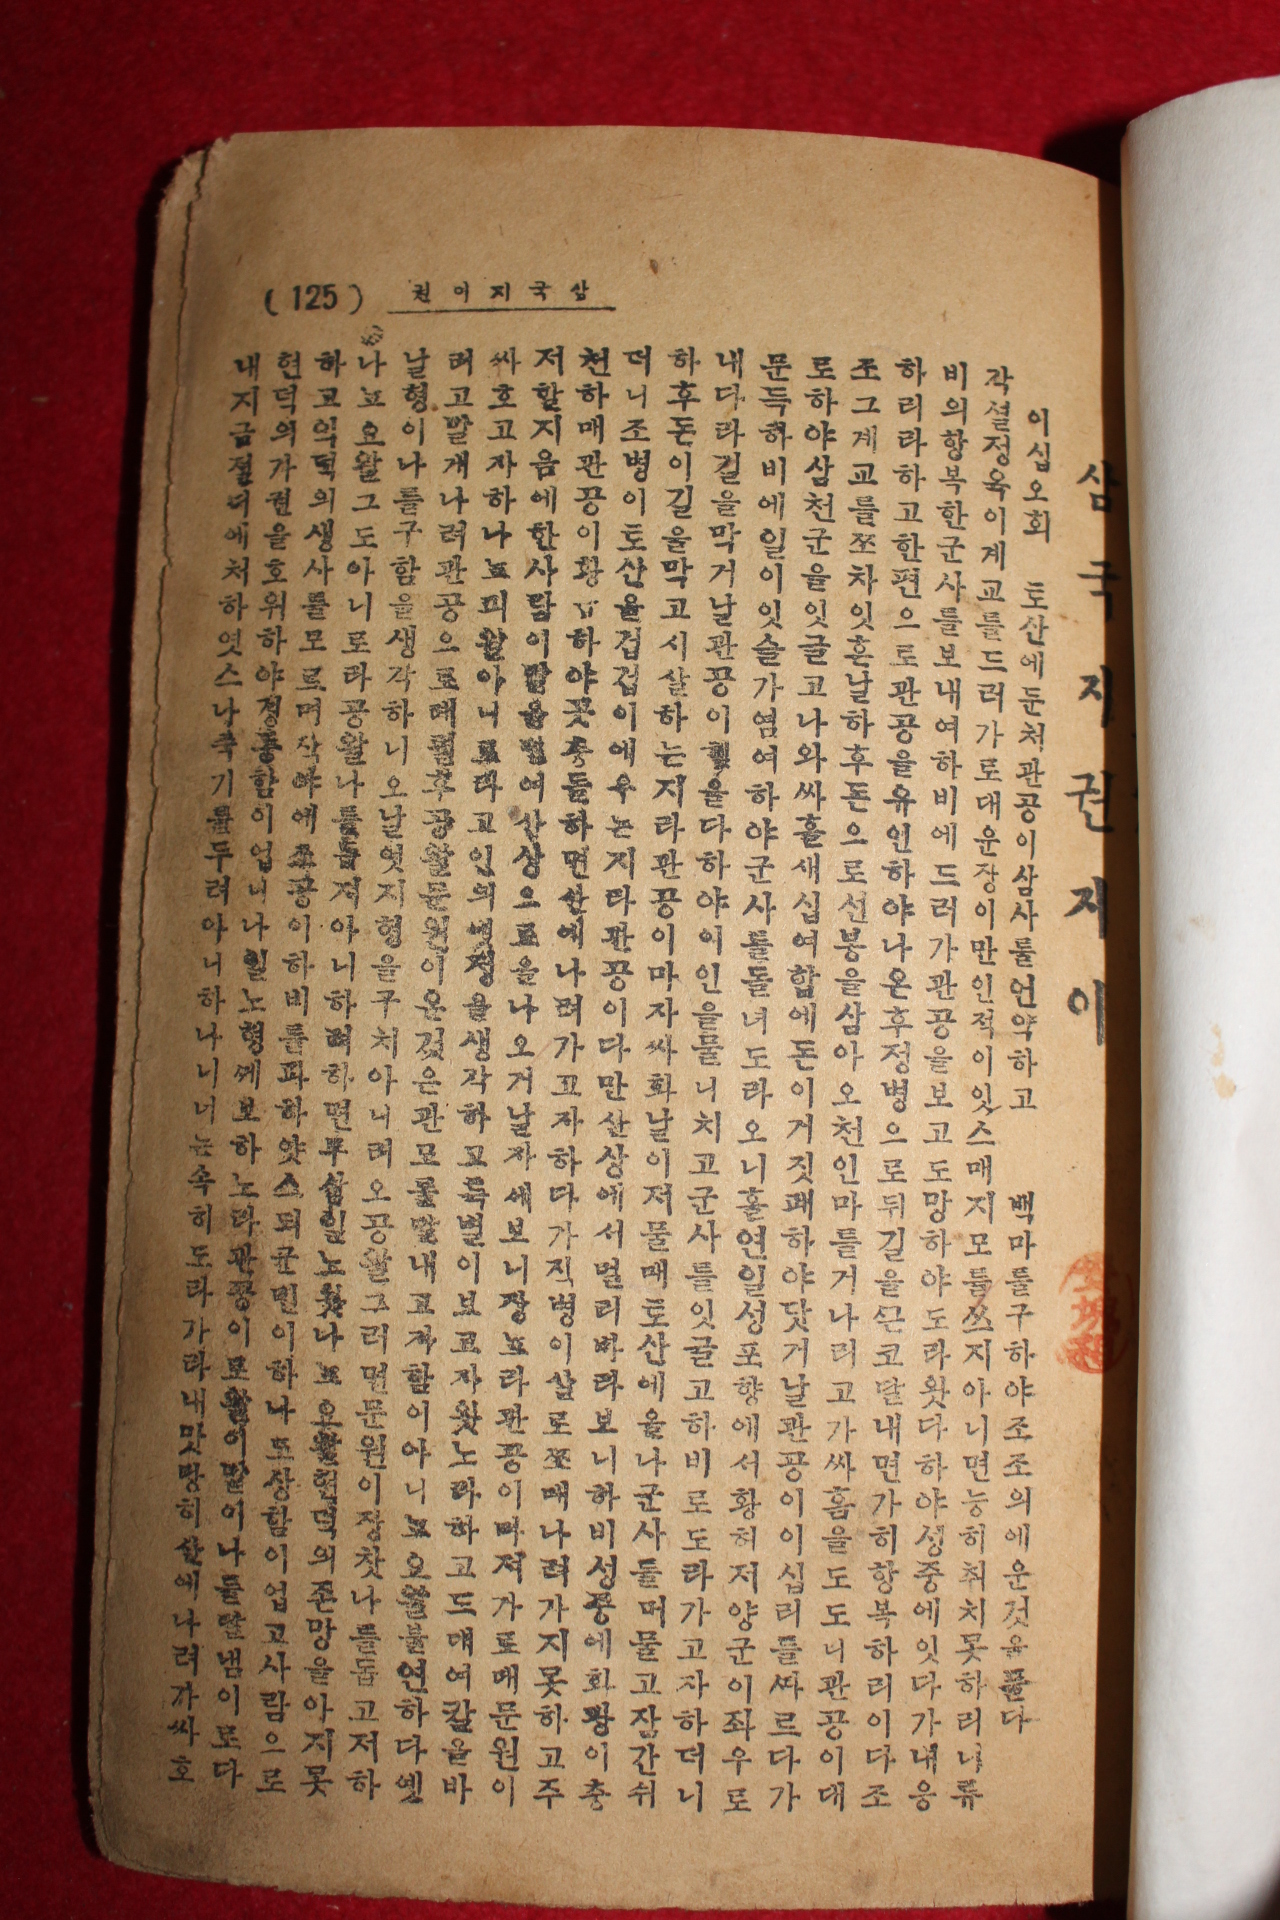 (125) 삼국지이권
삼국지권지이
이십오회 토산에둔처관공이삼사를언약하고 백마를구하야조조의에운것을풀다
각셜졍욱이계교를드러가로대운장이만인적이잇스매지모를쓰지아니면능히취치못하리니류
비의항복한군사를보내여하비에드러가관공을보고도망하야도라왓다하야셩중에잇다가내응
하리라하고한편으로관공을유인하야나온후졍병으로뒤길을ᄭᅳᆫ코달내면가히항복하리이다조
조그계교를조차잇흔날하후돈으로선봉을삼아오천인마를거나리고가싸홈을도도니관공이대
로하야삼천군을잇글고나와싸흘새십여합에돈이거짓패하야닷거날관공이이십리를ᄯᅡ르다가
문득하비에일이잇슬가염여하야군사를돌녀도라오니홀연일셩포향에서황허저양군이좌우로
내다라길을막거날관공이칼을다하야이인을물니치고군사를잇글고하비로도라가고자하더니
하후돈이길을막고시살하는지라관공이마자싸화날이저물매토산에올나군사를머물고잠간쉬
더니조병이토산을겁겁이에우는지라관공이다만산상에서멀리바라보니하비셩중에화광이충
천하매관공이황망하야곳충돌하면산에나려가고자하다가직병이살로쪼매나려가지못하고주
저할지음에한사람이말을달여산상으로올나오거날자세보니장뇨라관공이마져가로매문원이
싸호고자하나뇨피왈아니로라고인의녯정을생각하고특별이보고자왓노라하고드대여칼을바
리고말게나려관공으로례필후공왈문원이온것은관모를달내고저함이아니뇨요왈불연하다옛
날형이나를구함을생각하니오날엇지형을구치아니리오공왈그러면문원이장찻나를돕고저하
나뇨요왈그도아니로라공왈나를돕져아니하려하면무삼일노왓나뇨요왈현덕의존망을아지못
하고익덕의생사를모르며작야에조공이하비를파하얏스되군민이하나도상함이업고사람으로
현덕의가권을호위하야경동함이업나니일노형께보하노라관공이로왈이말이나를달냄이로다
내지금절디에처하엿스나죽기를두려아니하나니너는속히도라가라내맛당히산에나려가싸호